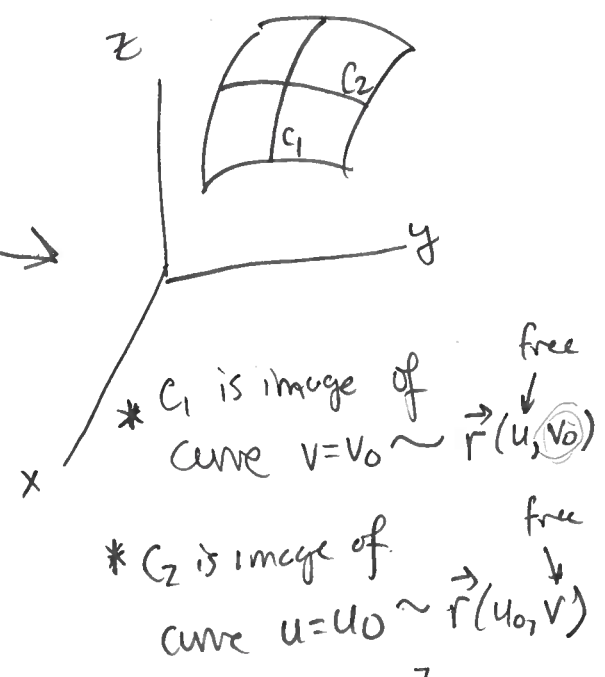 z
C₂
C₁
y
x
free
* C₁ is image of
curve v=v₀ ~ r⃗(u, v₀)
free
* C₂ is image of
curve u=u₀ ~ r⃗(u₀, v)